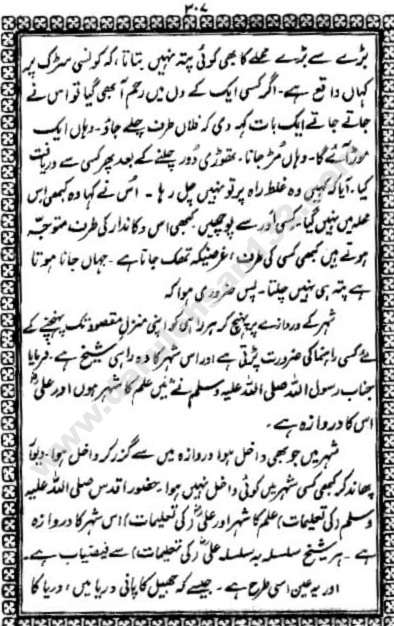 ۳۰۷
بڑے سے بڑے محلے کا بھی کوئی پتہ نہیں بتاتا، کہ کونسی سڑک پر
کہاں واقع ہے۔ اگر کسی ایک کے دل میں رحم آ بھی گیا تو اس نے
جاتے جاتے ایک بات کہہ دی کہ فلاں طرف چلے جاؤ۔ وہاں ایک
موڑ آئے گا۔ وہاں مڑ جانا۔ تھوڑی دور چلنے کے بعد پھر کسی سے دریافت
کیا۔ آیا کہ کہیں وہ غلط راہ پر تو نہیں چل رہا۔ اُس نے کہا وہ کبھی اس
محلہ میں نہیں گیا۔ کسی اور سے پوچھیں کبھی اس دکاندار کی طرف متوجہ
ہوتے ہیں کبھی کسی کی طرف، غرضیکہ تھک جاتا ہے۔ جہاں جانا ہوتا
ہے پتہ ہی نہیں چلتا۔ پس ضروری ہوا کہ
شہر کے دروازے پر پہنچ کر ہر راہی کو اپنی منزلِ مقصود تک پہنچنے کے
لئے کسی راہنما کی ضرورت پڑتی ہے اور اس شہر کا وہ راہی شیخ ہے۔ فرمایا
جناب رسول اللہ صلی اللہ علیہ وسلم نے میں علم کا شہر ہوں اور علیؓ
اس کا دروازہ ہے۔
شہر میں جو بھی داخل ہوا دروازہ میں سے گزر کر داخل ہوا۔ دیوار
پھاند کر کبھی کسی شہر میں کوئی داخل نہیں ہوا۔ حضور اقدس صلی اللہ علیہ
وسلم (کی تعلیمات) علم کا شہر اور علیؓ (کی تعلیمات) اس شہر کا دروازہ
ہے۔ ہر شیخ سلسلہ بہ سلسلہ علیؓ (کی تعلیمات) سے فیضیاب ہے۔
اور یہ عین اسی طرح ہے۔ جیسے کہ جھیل کا پانی دریا میں، دریا کا